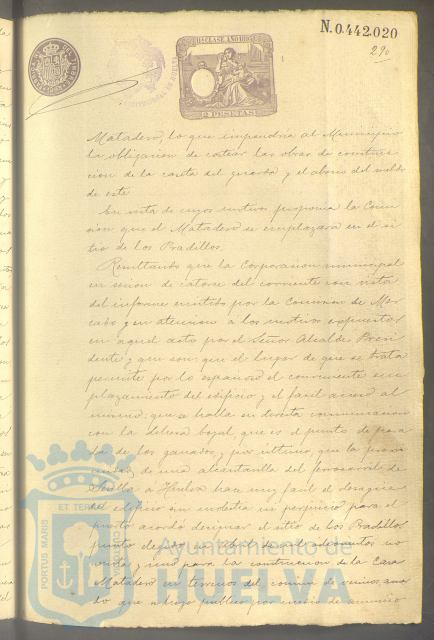 N.0.442.020
290
11ª CLASE AÑO 1886
2 PESETAS
Matadero, lo que impondria al Municipio
la obligacion de costear las obras de construc-
cion de la caseta del guarda y el abono del sueldo
de este
En vista de cuyos motivos proponia la Comi-
sion que el Matadero se emplazara en el si-
tio de los Pradillos.
Resultando que la Corporacion municipal
en sesion de catorce del corriente con vista
del informe emitido por la Comision de Mer-
cado y en atencion a los motivos expuestos
en aquel acto por el Señor Alcalde Presi-
dente y que son: que el lugar de que se trata
permite por lo espacioso el conveniente em-
plazamiento del edificio y el facil acceso al
mismo; que se halla en directa comunicacion
con la dehesa boyal, que es el punto de para-
da de los ganados, y por ultimo, que la proxi-
midad de una alcantarilla del ferrocarril de
Sevilla a Huelva hace muy facil el desagüe
del edificio sin molestia ni perjuicio para el
acordó designar el sitio de los Pradillos
punto elegido en Abril de mil ochocientos no-
venta y uno para la construccion de la Casa
Matadero en terrenos del comun de vecinos, ana-
do que se hizo publico por medio de anuncio
PORTUS MARIS
ET TERRAE
CUSTODIA
Ayuntamiento de
HUELVA